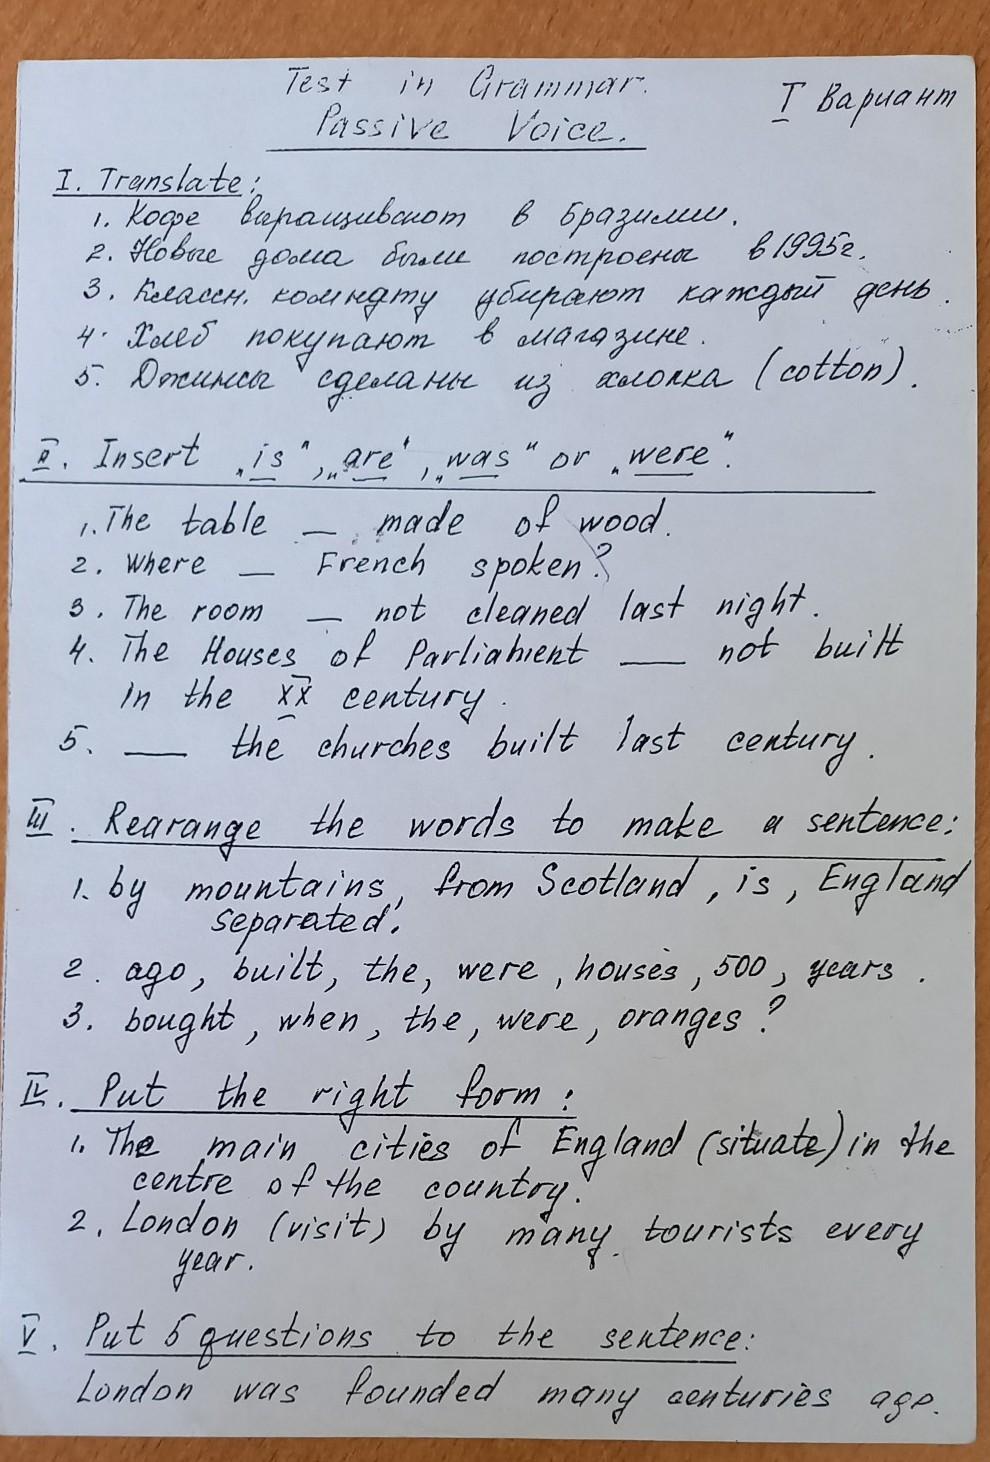 Test in Grammar.
Passive Voice.
I Вариант
I. Translate:
1. Кофе выращивают в Бразилии.
2. Новые дома были построены в 1995г.
3. Классн. комнату убирают каждый день.
4. Хлеб покупают в магазине.
5. Джинсы сделаны из хлопка (cotton).
II. Insert „is“, „are“, „was“ or „were“.
1. The table _ made of wood.
2. Where _ French spoken?
3. The room _ not cleaned last night.
4. The Houses of Parliament __ not built
in the XX century.
5. __ the churches built last century.
III. Rearange the words to make a sentence:
1. by mountains, from Scotland, is, England
separated.
2. ago, built, the, were, houses, 500, years.
3. bought, when, the, were, oranges?
IV. Put the right form:
1. The main cities of England (situate) in the
centre of the country.
2. London (visit) by many tourists every
year.
V. Put 5 questions to the sentence:
London was founded many centuries ago.